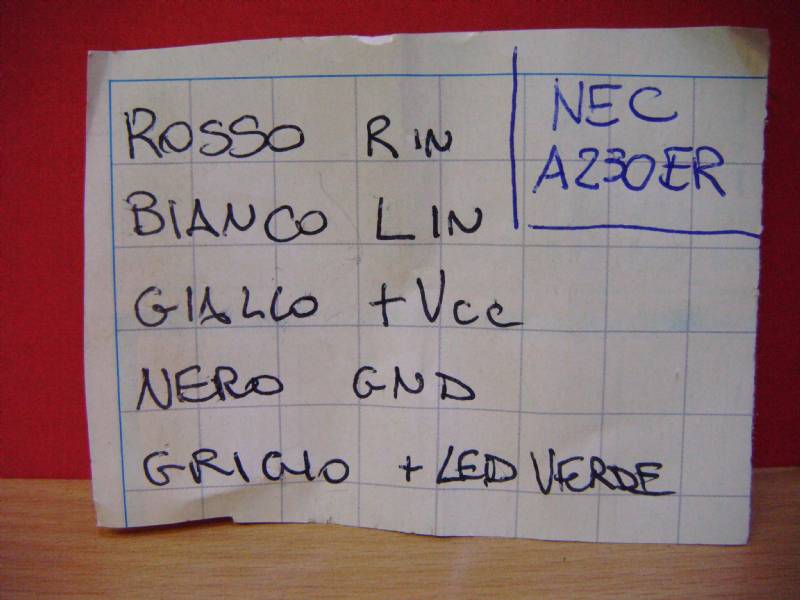 ROSSO R IN
BIANCO L IN
GIALLO +Vcc
NERO GND
GRIGIO + LED VERDE
NEC
A230ER